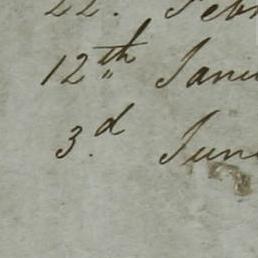 22. Feb
12th Janu
3.d June